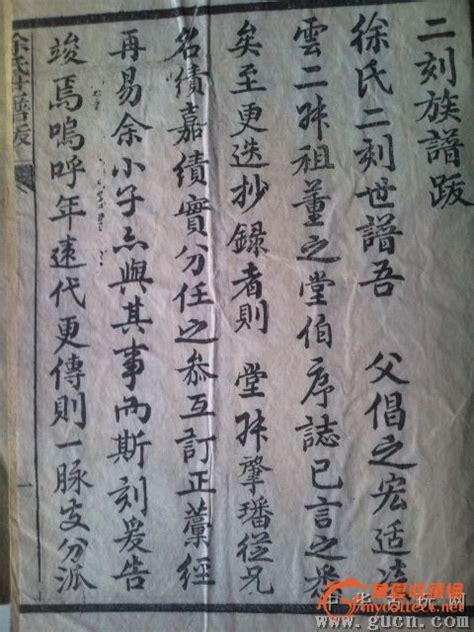 二刻族譜跋
徐氏二刻世譜吾 父倡之宏适凌
雲二叔祖董之堂伯序誌已言之
矣至更迭抄録者則 堂叔肇璠從兄
名績嘉績實分任之叅互訂正藁經
再易余小子亦與其事而斯刻爰告
竣焉嗚呼年遠代更傳則一脉支分派
徐氏世譜跋 一
華夏收藏網
mycollect.net
www.gucn.com